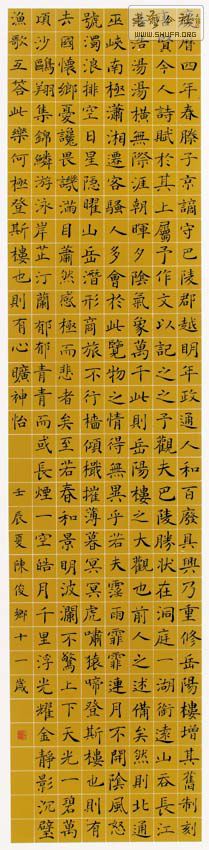 慶曆四年春滕子京謫守巴陵郡越明年政通人和百廢具興乃重修岳陽樓增其舊制刻
唐賢今人詩賦于其上屬予作文以記之之予觀夫巴陵勝狀在洞庭一湖銜遠山吞長江
浩浩湯湯橫無際涯朝暉夕陰氣象萬千此則岳陽樓之大觀也前人之述備矣然則北通
巫峽南極瀟湘遷客騷人多會於此覽物之情得無異乎若夫霪雨霏霏連月不開陰風怒
號濁浪排空日星隱曜山岳潛形商旅不行檣傾檝摧薄暮冥冥虎嘯猿啼登斯樓也則有
去國懷鄉憂讒畏譏滿目蕭然感極而悲者矣至若春和景明波瀾不驚上下天光一碧萬
頃沙鷗翔集錦鱗游泳岸芷汀蘭郁郁青青而或長煙一空皓月千里浮光耀金靜影沉璧
漁歌互答此樂何極登斯樓也則有心曠神怡
壬辰夏陳俊鄉十一歲
WWW.SHUFA.ORG